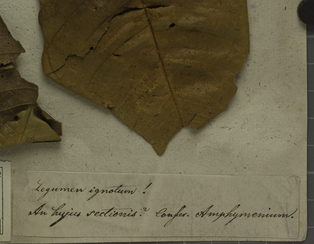 Legumen ignotum !
An hujus sectionis? Confer. Amphymenium.